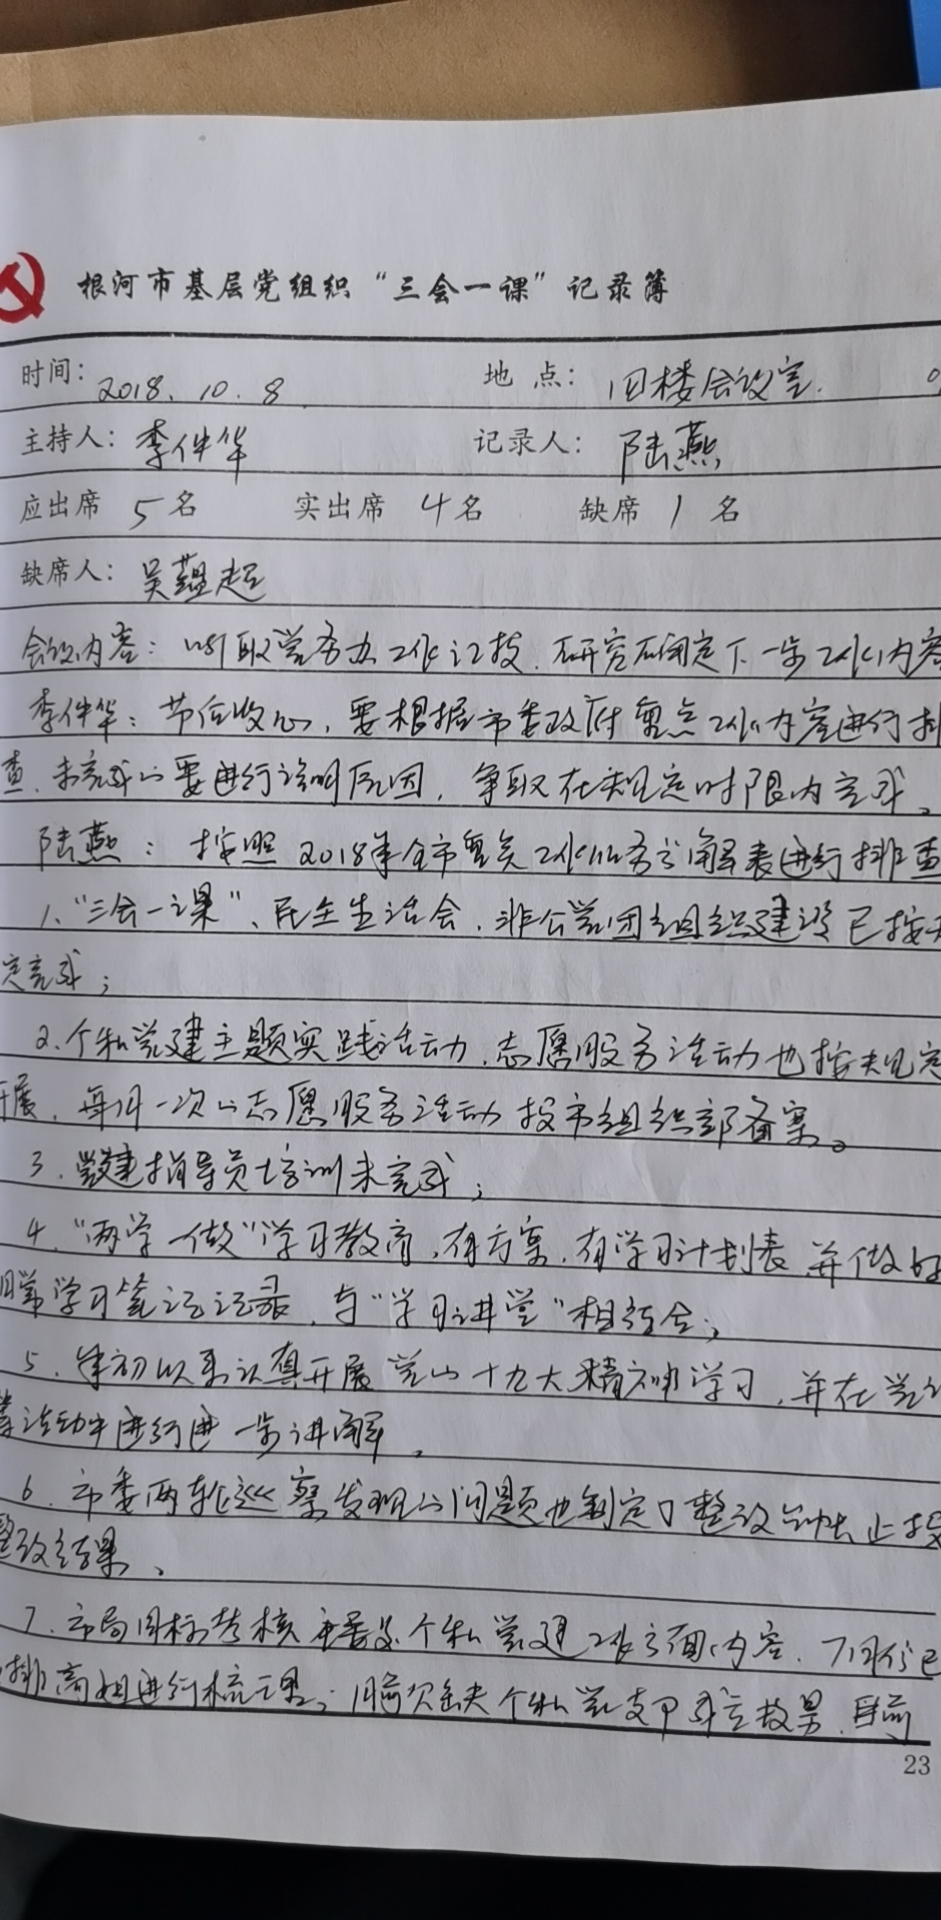 根河市基层党组织“三会一课”记录簿
时间：2018.10.8 地点：旧楼会议室.
主持人：李件华 记录人：陆燕
应出席 5名 实出席 4名 缺席 1 名
缺席人：吴蕴超
会议内容：听取党务办工作汇报.研究确定下一步工作内容
李件华：节后收心，要根据市委政府重点工作内容进行排
查.未完成的要进行说明原因，争取在规定时限内完成。
陆燕：按照2018年全市重点工作任务分解表进行排查
1、“三会一课”、民主生活会.非公党团组织建设已按规
定完成；
2.个私党建主题实践活动.志愿服务活动也按规定
开展.每月一次的志愿服务活动报市组织部备案。
3.党建指导员培训未完成；
4.“两学一做”学习教育.有方案.有学习计划表 并做好
日常学习笔记记录.与“学习讲堂”相结合；
5.年初以来认真开展党的十九大精神学习.并在党
活动中进行进一步讲解。
6.市委两轮巡察发现的问题也制定了整改 上报
整改结果.
7.市局目标考核 个私党建工作方面内容.7月份已
排高姐进行梳理；目前欠缺个私党支部成立 .目前
23